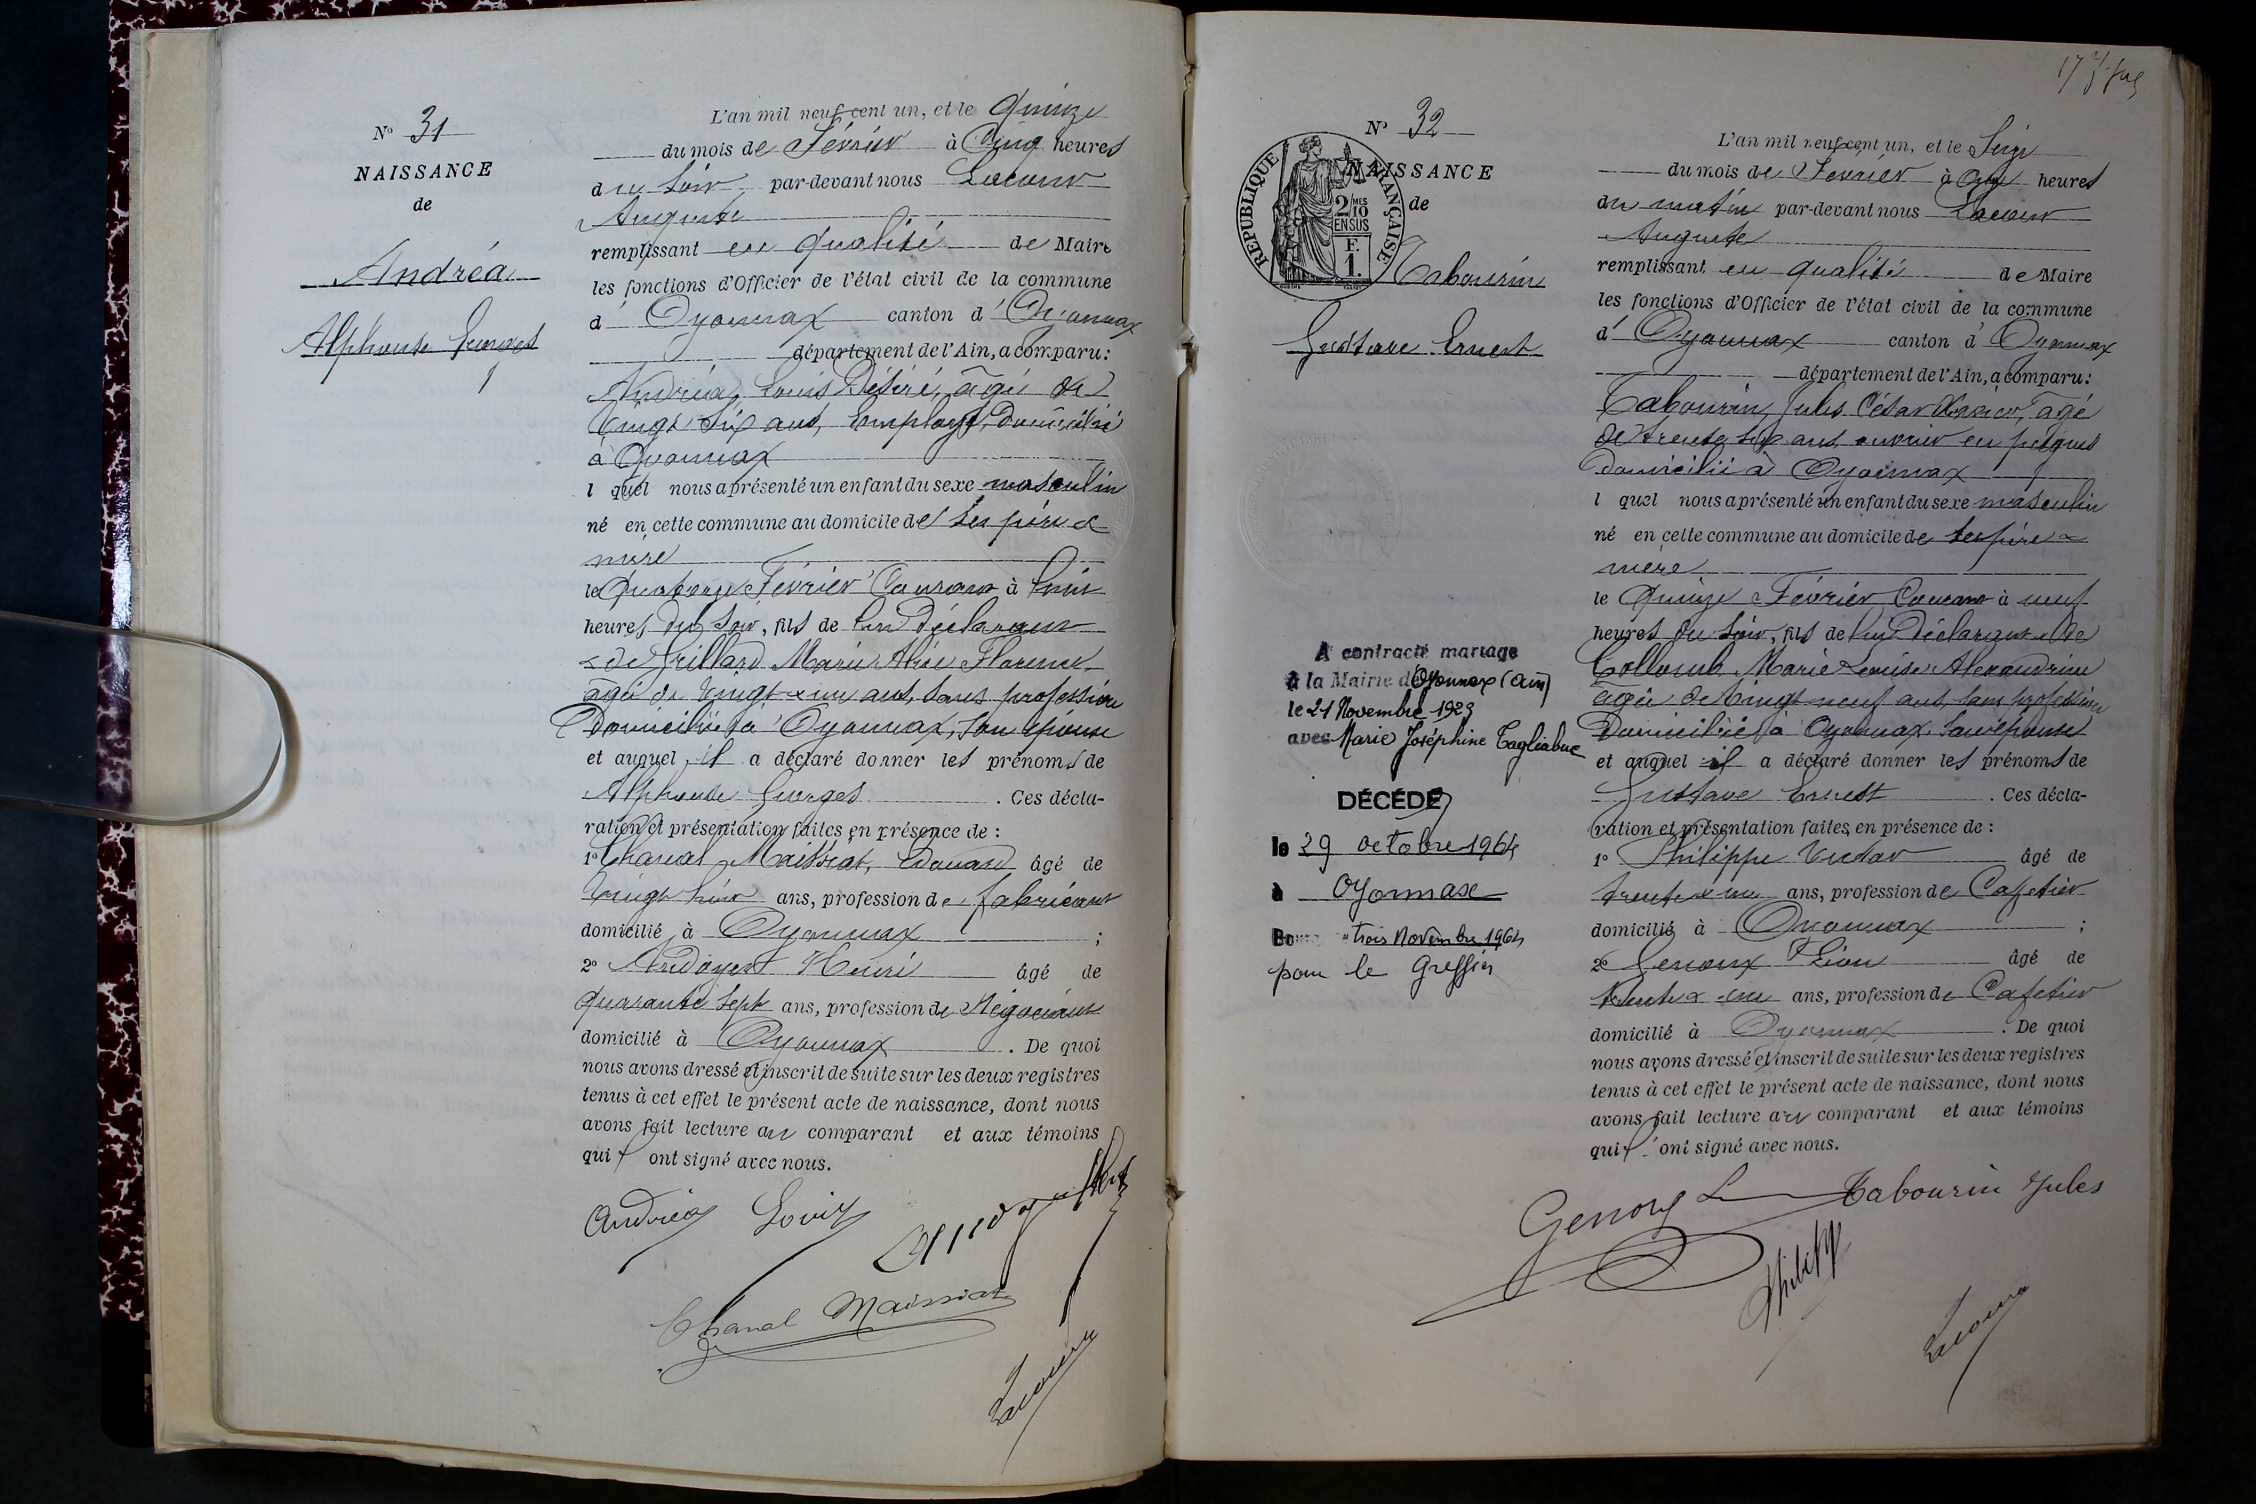 N° 31
NAISSANCE
de
Andréa
Alphonse Georges
L'an mil neuf cent un, et le Quinze
du mois de Février à Cinq heures
du Soir par-devant nous Lacour
Auguste
remplissant en qualité de Maire
les fonctions d'Officier de l'état civil de la commune
d' Oyonnax canton d' Oyonnax
département de l'Ain, a comparu:
Andréa, Louis Désiré, âgé de
Vingt Six ans, Employé, domicilié
à Oyonnax
l quel nous a présenté un enfant du sexe masculin
né en cette commune au domicile de ses père &
mère
le Quatorze Février Courant à huit
heures du Soir, fils de lui Déclarant
& de Grillard Marie Alice Florence
âgée de Vingt & un ans, sans profession
Domiciliée à Oyonnax, son épouse
et auquel il a déclaré donner les prénoms de
Alphonse Georges . Ces décla-
ration et présentation faites en présence de :
1° Chanal Maissiat, Edouard âgé de
Vingt huit ans, profession de fabricant
domicilié à Oyonnax ;
2° Andoyent Henri âgé de
Quarante Sept ans, profession de Négociant
domicilié à Oyonnax . De quoi
nous avons dressé et inscrit de suite sur les deux registres
tenus à cet effet le présent acte de naissance, dont nous
avons fait lecture au comparant et aux témoins
qui ont signé avec nous.
Andréa Louis
Chanal Maissiat
Lacour
N° 32
NAISSANCE
de
REPUBLIQUE FRANÇAISE
2/10
MES
EN SUS
F.
1.
Tabourin
Gustave Ernest
A contracté mariage
à la Mairie d'Oyonnax (Ain)
le 21 Novembre 1923
avec Marie Joséphine Tagliabue
DÉCÉDÉ
le 29 octobre 1964
à Oyonnax
Bourg trois Novembre 1964
pour le Greffier
L'an mil neuf cent un, et le Seize
du mois de Février à Onze heures
du matin par-devant nous Lacour
Auguste
remplissant en qualité de Maire
les fonctions d'Officier de l'état civil de la commune
d' Oyonnax canton d' Oyonnax
département de l'Ain, a comparu:
Tabourin, Jules César Xavier, âgé
de trente six ans, ouvrier en peignes
domicilié à Oyonnax
l quel nous a présenté un enfant du sexe masculin
né en cette commune au domicile de ses père &
mère
le Quinze Février Courant à neuf
heures du Soir, fils de lui Déclarant & de
Collomb Marie Louise Alexandrine
âgée de Vingt neuf ans, sans profession
Domiciliée à Oyonnax, son épouse
et auquel il a déclaré donner les prénoms de
Gustave Ernest . Ces décla-
ration et présentation faites en présence de :
1° Philippe Victor âgé de
trente & un ans, profession de Cafetier
domicilié à Oyonnax ;
2° Genoux Léon âgé de
trente & un ans, profession de Cafetier
domicilié à Oyonnax . De quoi
nous avons dressé et inscrit de suite sur les deux registres
tenus à cet effet le présent acte de naissance, dont nous
avons fait lecture au comparant et aux témoins
qui ont signé avec nous.
Genoux L Tabourin Jules
Philippe
Lacour